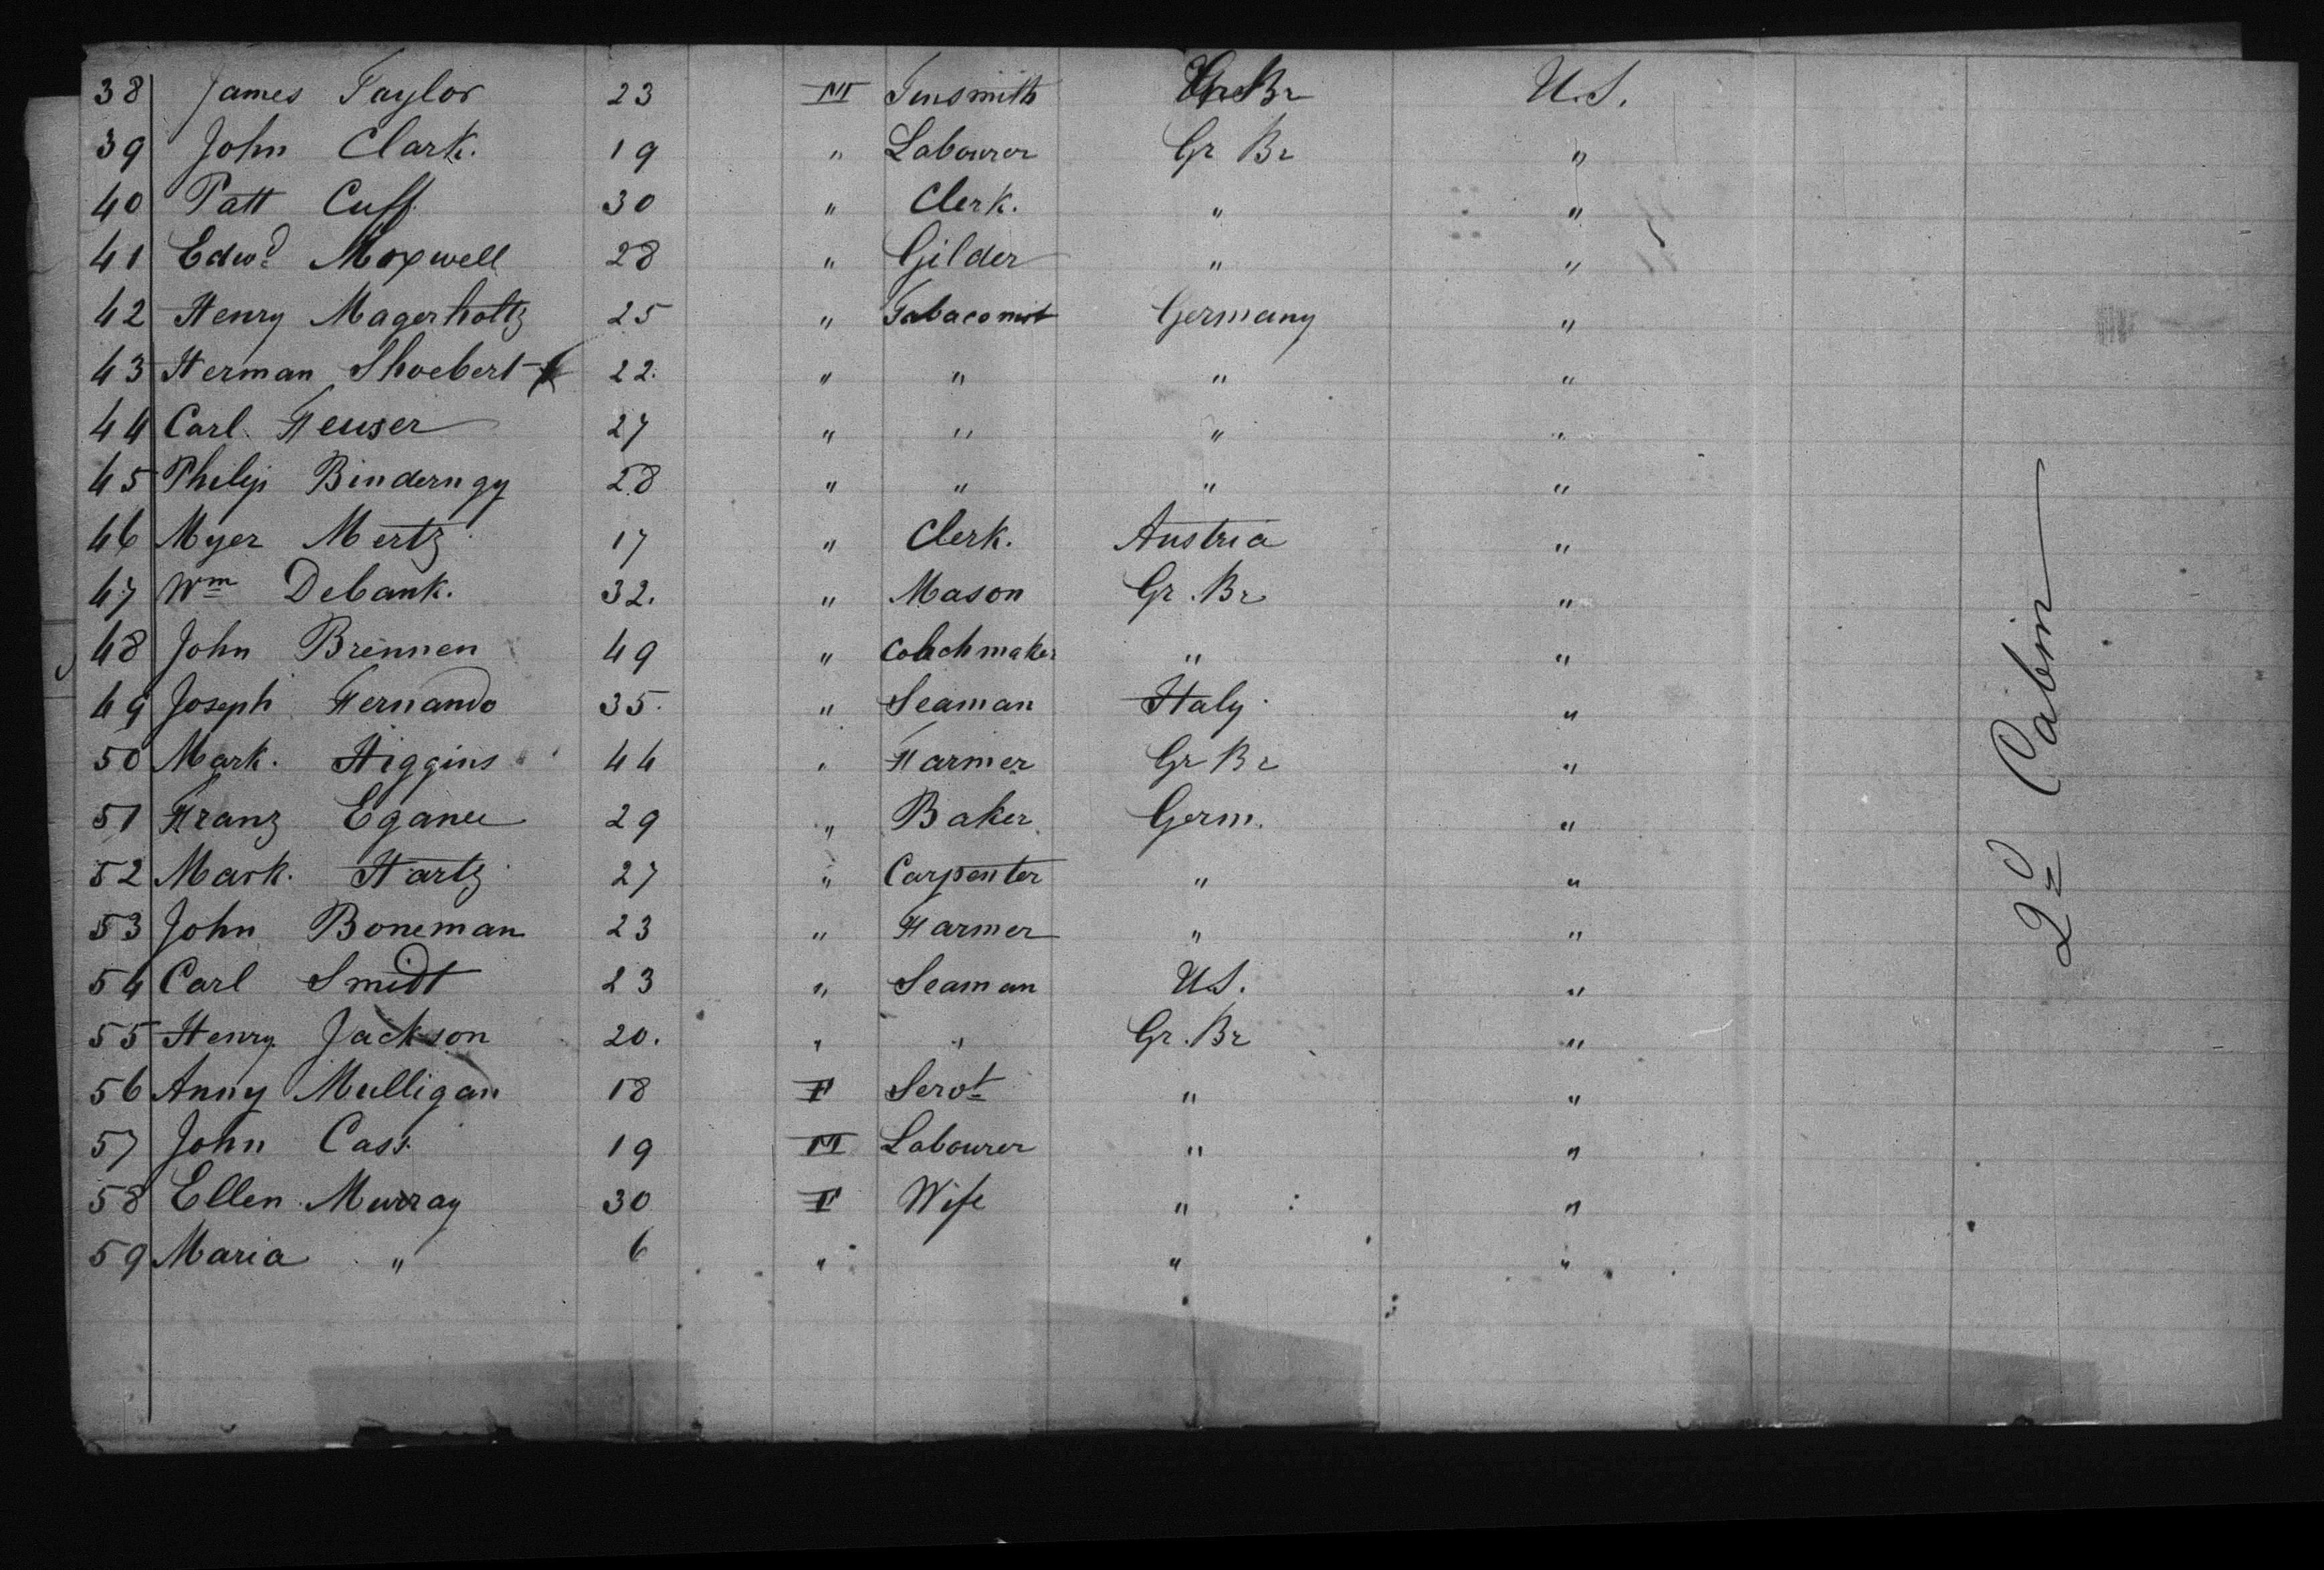 38 James Taylor 23 M Tinsmith Gr Br U.S.
39 John Clark. 19 " Labourer Gr Br "
40 Patt Cuff. 30 " Clerk. " "
41 Edwd Moxwell 28 " Gilder " "
42 Henry Magerholtz 25 " Tabaconist Germany "
43 Herman Shoebert 22. " " " "
44 Carl Feuser 27 " " " "
45 Philip 28 " " " "
46 Myer Mertz 17 " Clerk. Austria "
47 Wm Debank. 32. " Mason Gr. Br "
48 John Brennen 49 " Coachmaker " "
49 Joseph Fernando 35. " Seaman Italy "
50 Mark. Higgins 44 " Farmer Gr Br "
51 Franz 29 " Baker Germ. "
52 Mark. Hartz 27 " Carpenter " "
53 John Boneman 23 " Farmer " "
54 Carl Smidt 23 " Seaman U.S. "
55 Henry Jackson 20. " " Gr. Br "
56 Anny Mulligan 18 F Servt " "
57 John Cass. 19 M Labourer " "
58 Ellen Murray 30 F Wife " "
59 Maria " 6 " " "
2d Cabin